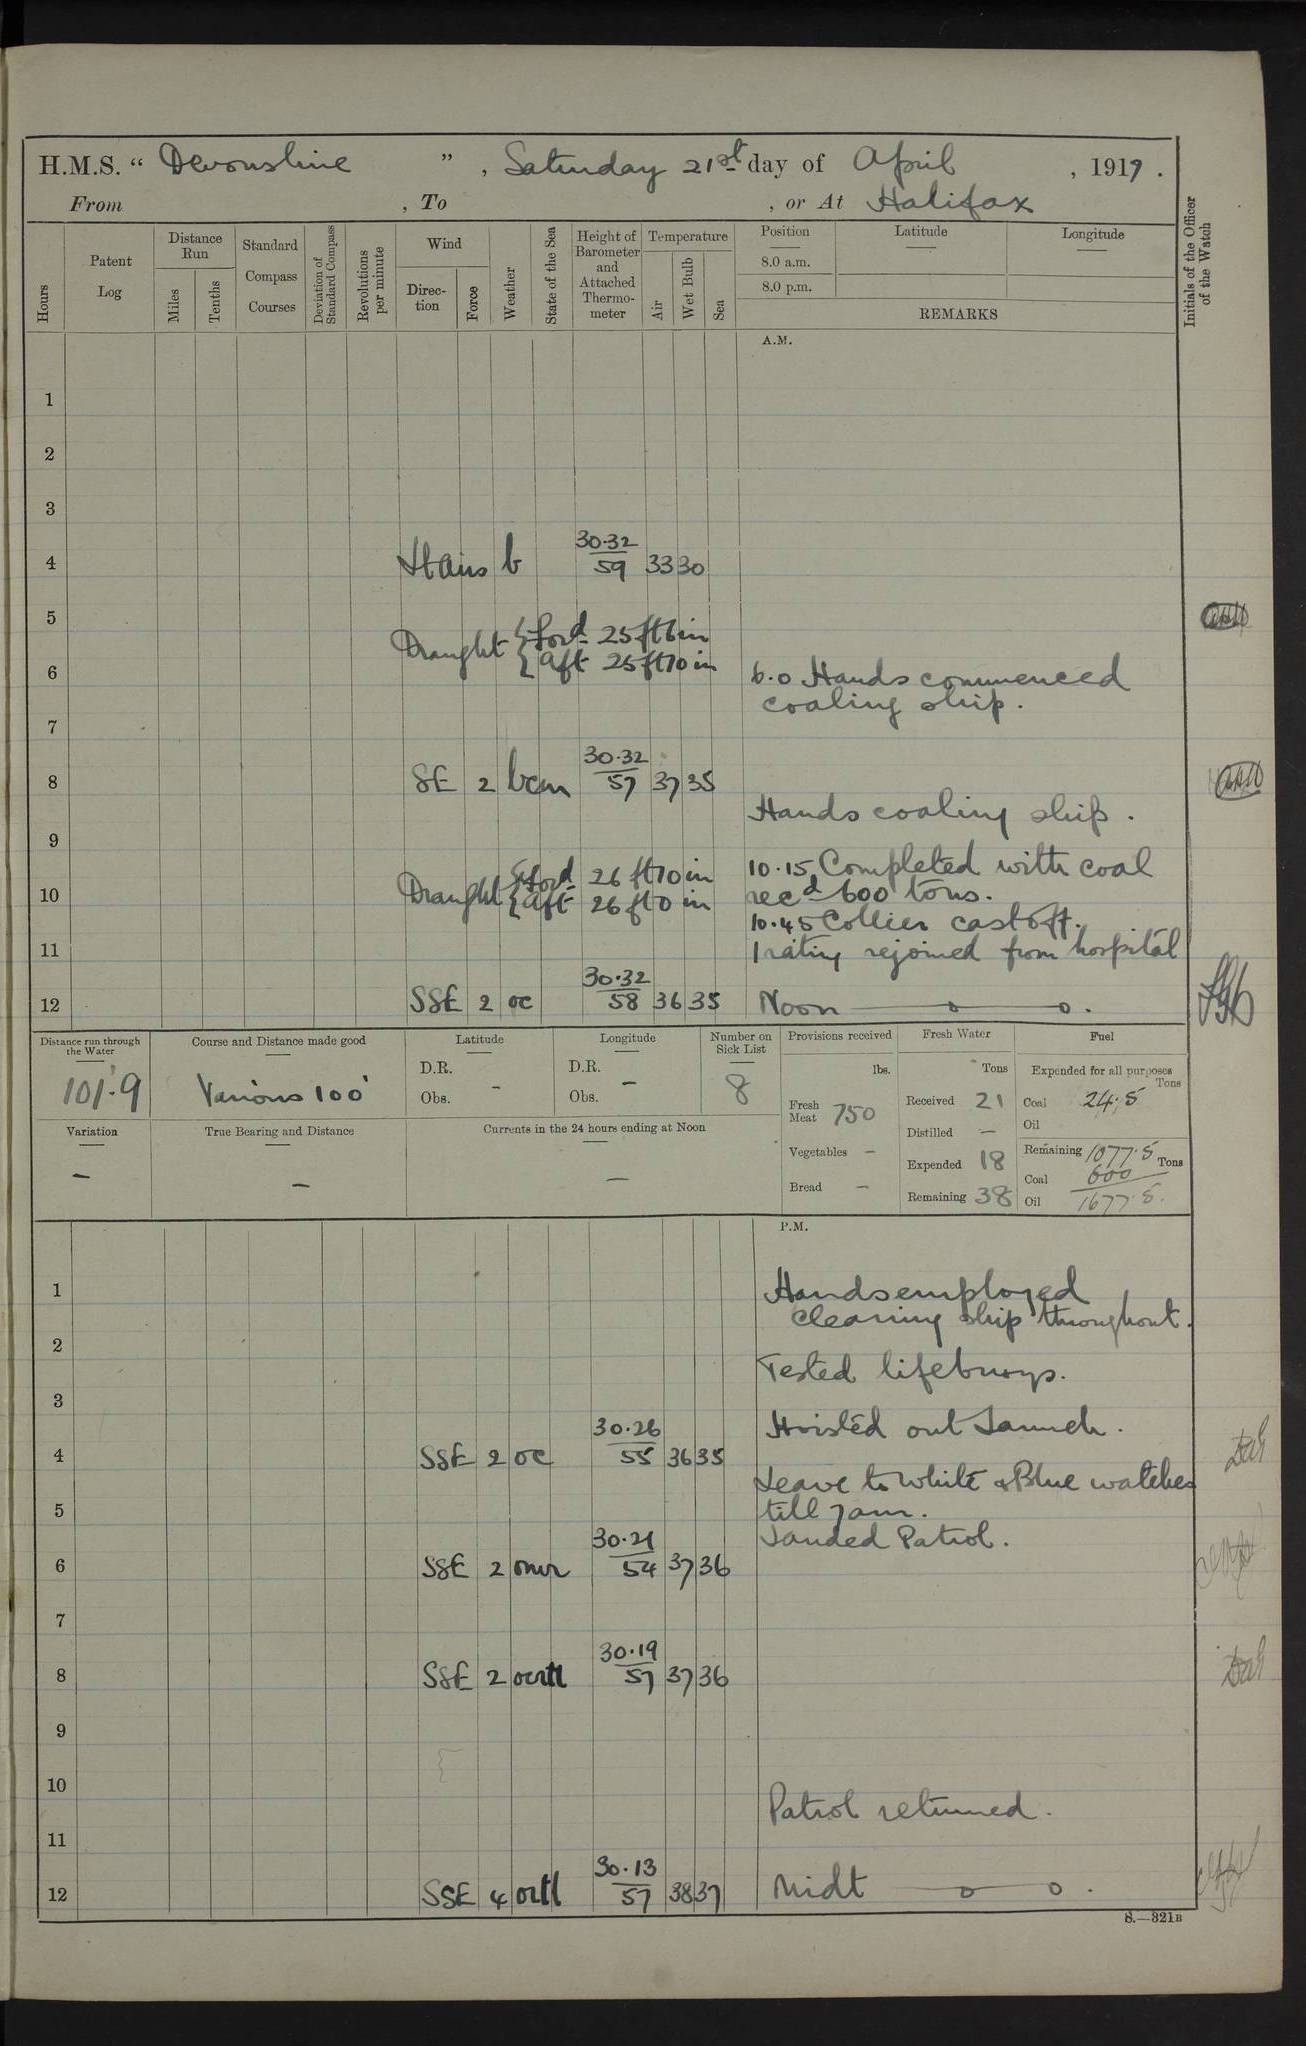 H.M.S. " Devonshire ", Saturday 21st day of April, 1917.
From , To , or At Halifax
Hours
Patent Log
Distance Run
Miles
Tenths
Standard Compass Courses
Deviation of Standard Compass
Revolutions per minute
Wind
Direction
Force
Weather
State of the Sea
Height of Barometer and Attached Thermometer
Temperature
Air
Wet Bulb
Sea
Position
8.0 a.m.
8.0 p.m.
Latitude
Longitude
REMARKS
Initials of the Officer of the Watch
A.M.
1
2
3
4 Lt airs b 30.32/59 33 30
5
Draught { ford 25 ft 6 in
{ aft 25 ft 10 in
6 6.0 Hands commenced
coaling ship.
7
8 SE 2 bcm 30.32/57 37 35
Hands coaling ship.
9
Draught { ford 26 ft 10 in 10.15 Completed with coal
10 { aft 26 ft 0 in recd 600 tons.
10.45 Collier cast off.
11 1 rating rejoined from hospital
12 SSE 2 oc 30.32/58 36 35 Noon
Distance run through the Water
101.9
Course and Distance made good
Various 100'
Latitude
D.R.
Obs. -
Longitude
D.R. -
Obs.
Number on Sick List
8
Provisions received
lbs.
Fresh Meat 750
Vegetables -
Bread -
Fresh Water
Tons
Received 21
Distilled -
Expended 18
Remaining 38
Fuel
Expended for all purposes
Tons
Coal 24.5
Oil
Remaining 1077.5 Tons
Coal 600
Oil 1677.5.
Variation
-
True Bearing and Distance
-
Currents in the 24 hours ending at Noon
-
P.M.
1 Hands employed
cleaning ship throughout.
2
Tested lifebuoys.
3
Hoisted out Launch.
4 SSE 2 oc 30.26/55 36 35
Leave to White & Blue watches
5 till 7am.
Landed Patrol.
6 SSE 2 omr 30.21/54 37 36
7
8 SSE 2 30.19/57 37 36
9
10
Patrol returned.
11
12 SSE 4 30.13/57 38 37 Midt
S.—321B